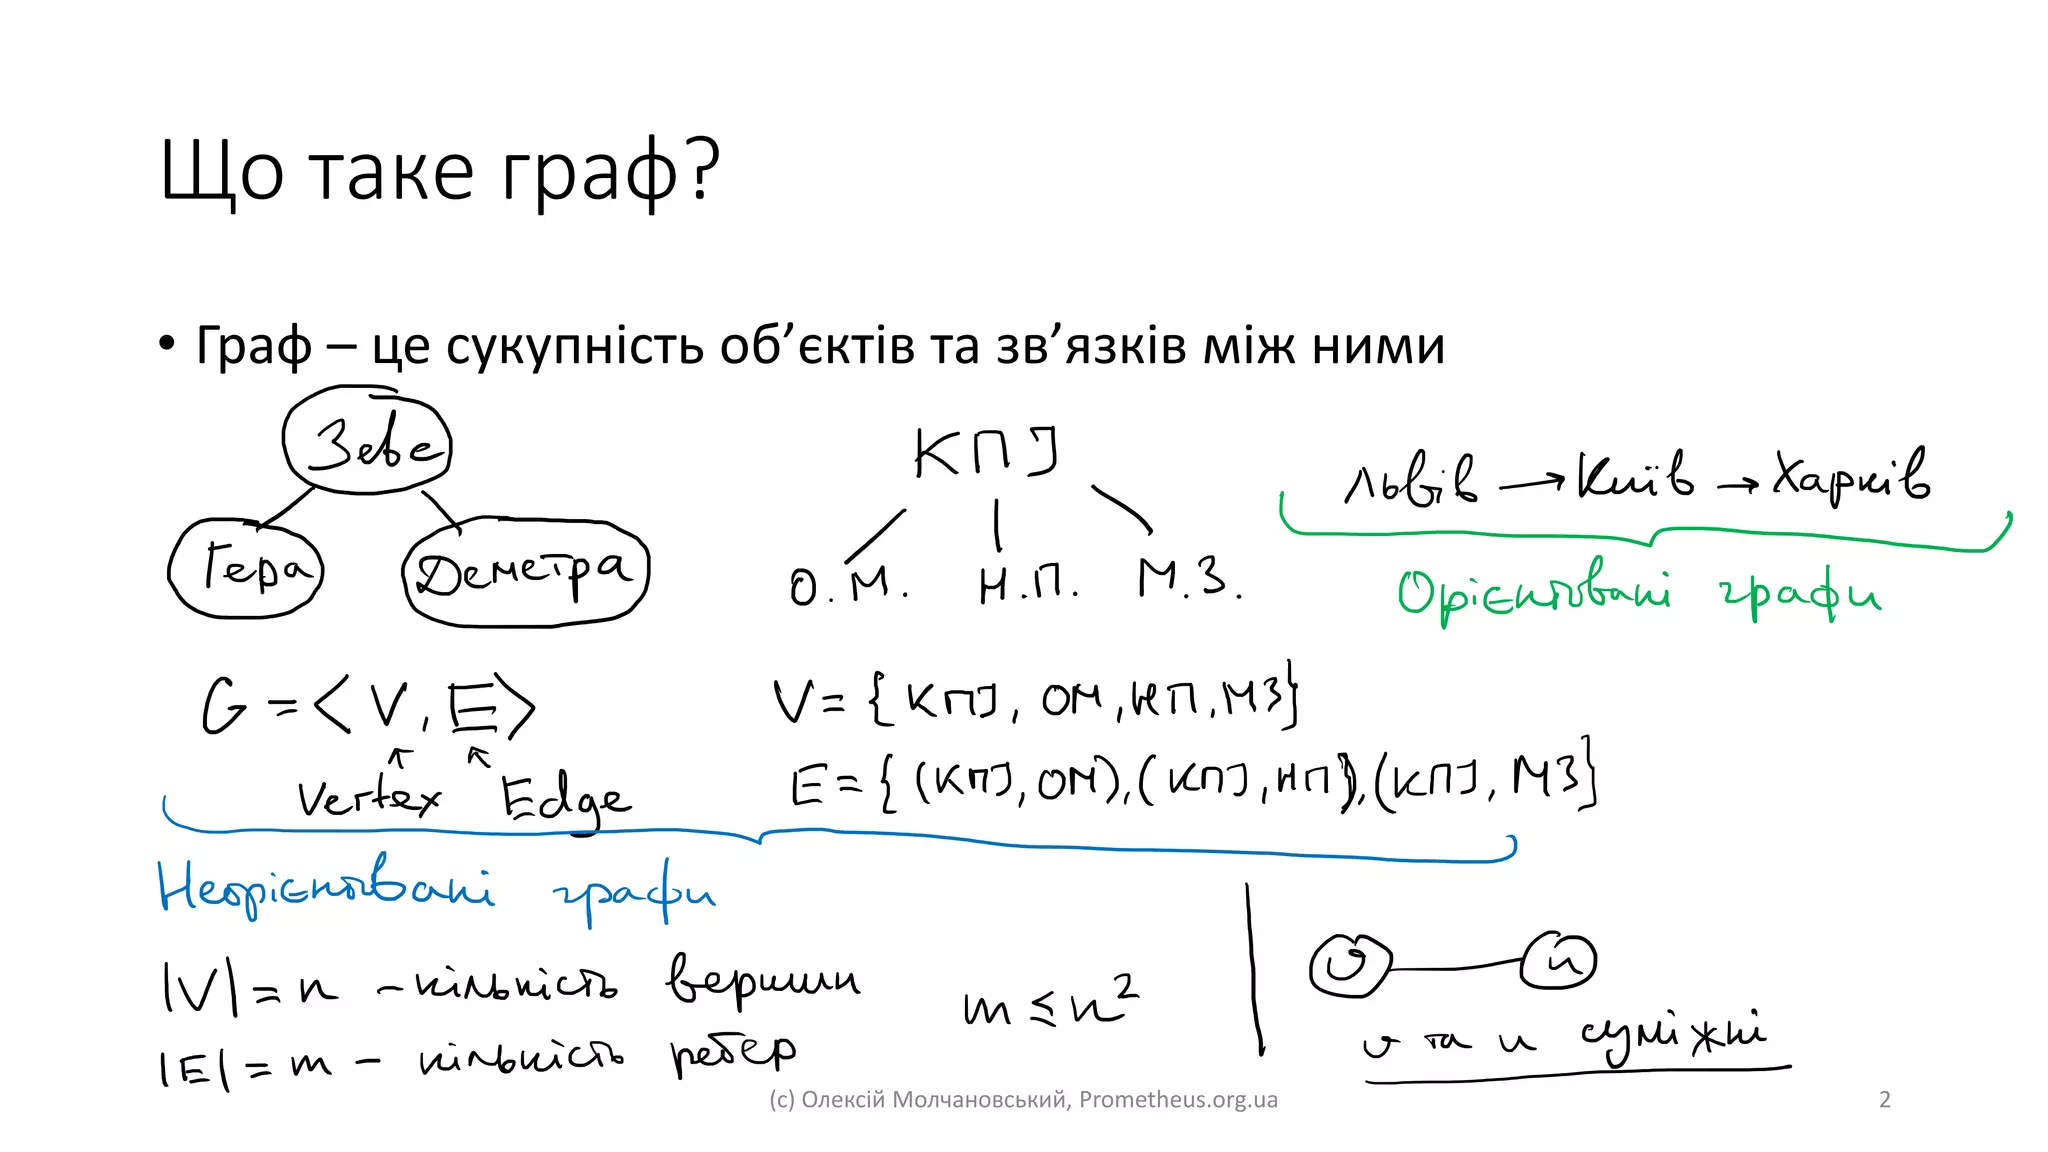 Що таке граф?
• Граф – це сукупність об’єктів та зв’язків між ними
Зевс
Гера Деметра
КПІ
О.М. Н.П. М.З.
Львів → Київ → Харків
Орієнтовані графи
G = < V, E >
Vertex Edge
V = { КПІ, ОМ, НП, МЗ}
E = { (КПІ, ОМ), (КПІ, НП), (КПІ, МЗ}
Неорієнтовані графи
|V| = n - кількість вершин
|E| = m - кількість ребер
m ≤ n²
v u
v та u суміжні
(с) Олексій Молчановський, Prometheus.org.ua
2